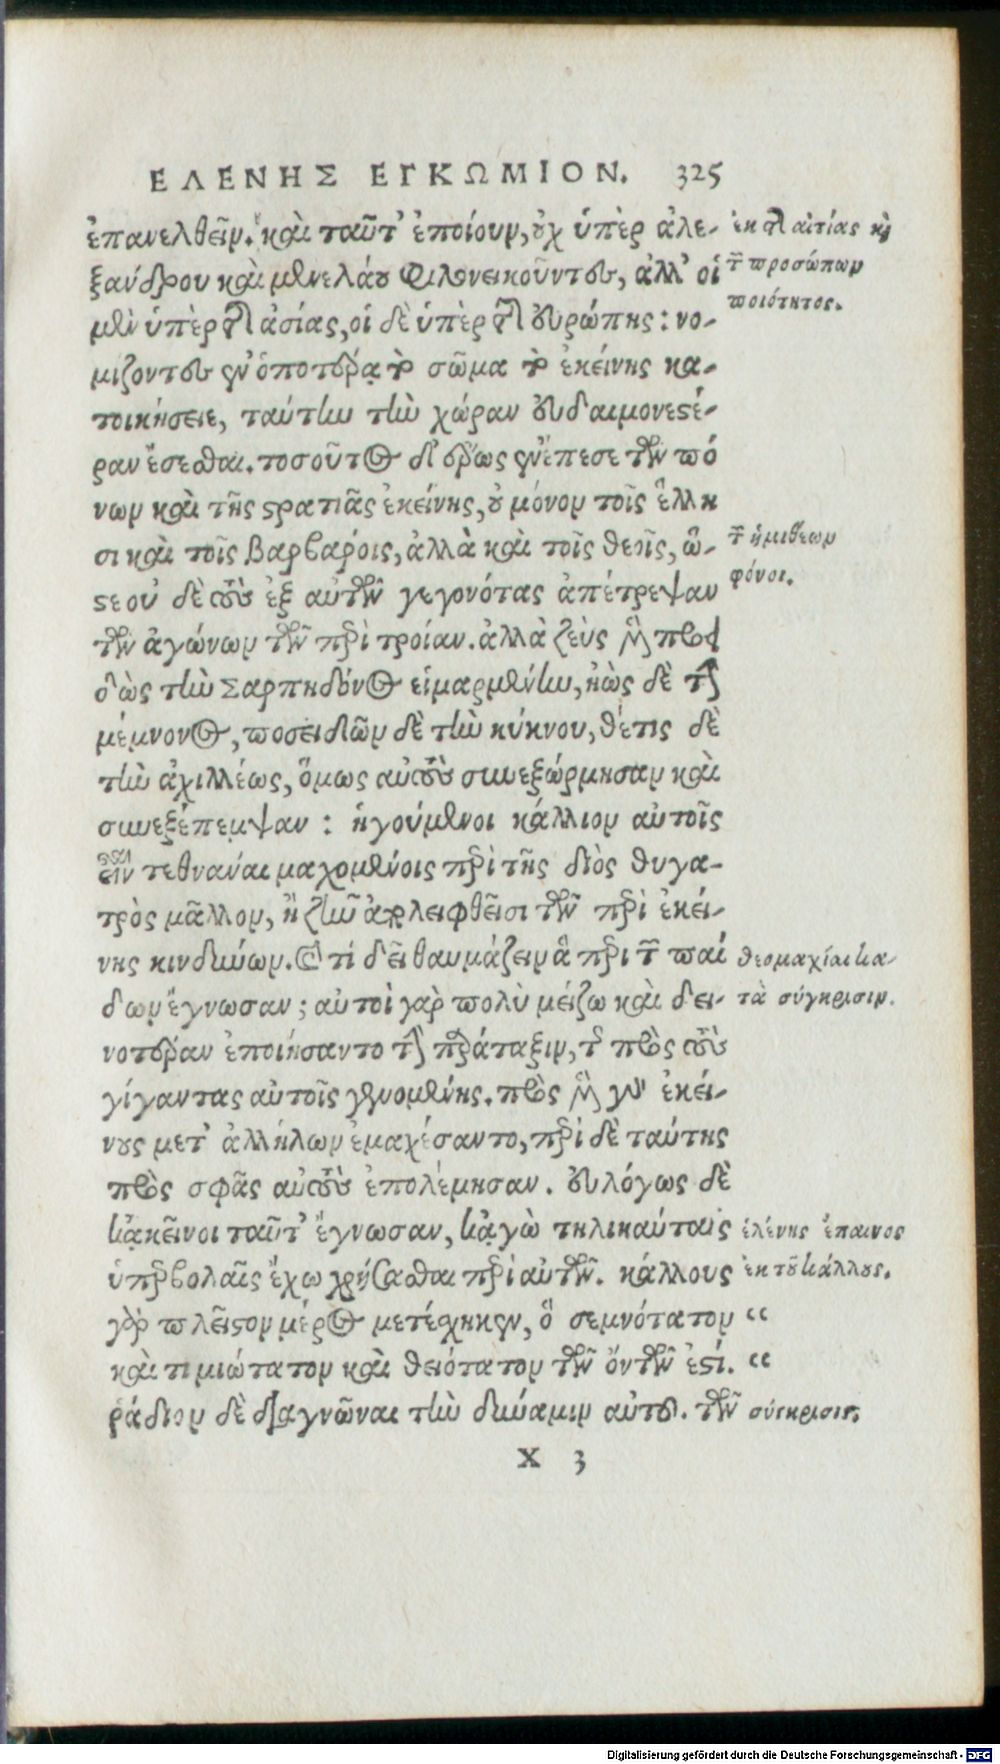 ΕΛΕΝΗΣ ΕΓΚΩΜΙΟΝ. 325
ἐπανελθεῖν. καὶ ταῦτ' ἐποίουν, οὐχ ὑπὲρ ἀλε-
ξάνδρου καὶ μενελάου φιλονεικοῦντες, ἀλλ' οἱ
μὲν ὑπὲρ τῆς ἀσίας, οἱ δὲ ὑπὲρ τῆς εὐρώπης: νο-
μίζοντες ἐν ὁποτέρᾳ τὸ σῶμα τὸ ἐκείνης κα-
τοικήσειε, ταύτην τὴν χώραν εὐδαιμονεστέ-
ραν ἔσεσθαι. τοσοῦτος δ' ἔρως ἐνέπεσε τῶν πό
νων καὶ τῆς στρατιᾶς ἐκείνης, οὐ μόνον τοῖς ἕλλη
σι καὶ τοῖς βαρβάροις, ἀλλὰ καὶ τοῖς θεοῖς, ὥ-
στε οὐ δὲ τοὺς ἐξ αὐτῶν γεγονότας ἀπέτρεψαν
τῶν ἀγώνων τῶν περὶ τροίαν. ἀλλὰ ζεὺς μὲν προει
δὼς τὴν Σαρπηδόνος εἱμαρμένην, ἠὼς δὲ τὴν
μέμνονος, ποσειδῶν δὲ τὴν κύκνου, θέτις δὲ
τὴν ἀχιλλέως, ὅμως αὐτοὺς συνεξώρμησαν καὶ
συνεξέπεμψαν: ἡγούμενοι κάλλιον αὐτοῖς
εἶναι τεθνάναι μαχομένοις περὶ τῆς διὸς θυγα-
τρὸς μᾶλλον, ἢ ζῆν ἀπολειφθεῖσι τῶν περὶ ἐκεί-
νης κινδύνων. καὶ τί δεῖ θαυμάζειν ἃ περὶ τῶν παί
δων ἔγνωσαν; αὐτοὶ γὰρ πολὺ μείζω καὶ δει-
νοτέραν ἐποιήσαντο τὴν παράταξιν, τῆς πρὸς τοὺς
γίγαντας αὐτοῖς γενομένης. πρὸς μὲν γὰρ ἐκεί-
νους μετ' ἀλλήλων ἐμαχέσαντο, περὶ δὲ ταύτης
πρὸς σφᾶς αὐτοὺς ἐπολέμησαν. εὐλόγως δὲ
κᾀκεῖνοι ταῦτ' ἔγνωσαν, κᾀγὼ τηλικαύταις
ὑπερβολαῖς ἔχω χρήσασθαι περὶ αὐτῶν. κάλλους
γὰρ πλεῖστον μέρος μετέσχηκεν, ὃ σεμνότατον “
καὶ τιμιώτατον καὶ θειότατον τῶν ὄντων ἐστί. “
ῥάδιον δὲ διαγνῶναι τὴν δύναμιν αὐτοῦ. τῶν
X 3
ἐκ τῆς αἰτίας καὶ
τῶν προσώπων
ποιότητος.
τῶν ἡμιθέων
φόνοι.
θεομαχίαι κα-
τὰ σύγκρισιν.
ἑλένης ἔπαινος
ἐκ τοῦ κάλλους.
σύγκρισις.
Digitalisierung gefördert durch die Deutsche Forschungsgemeinschaft - DFG